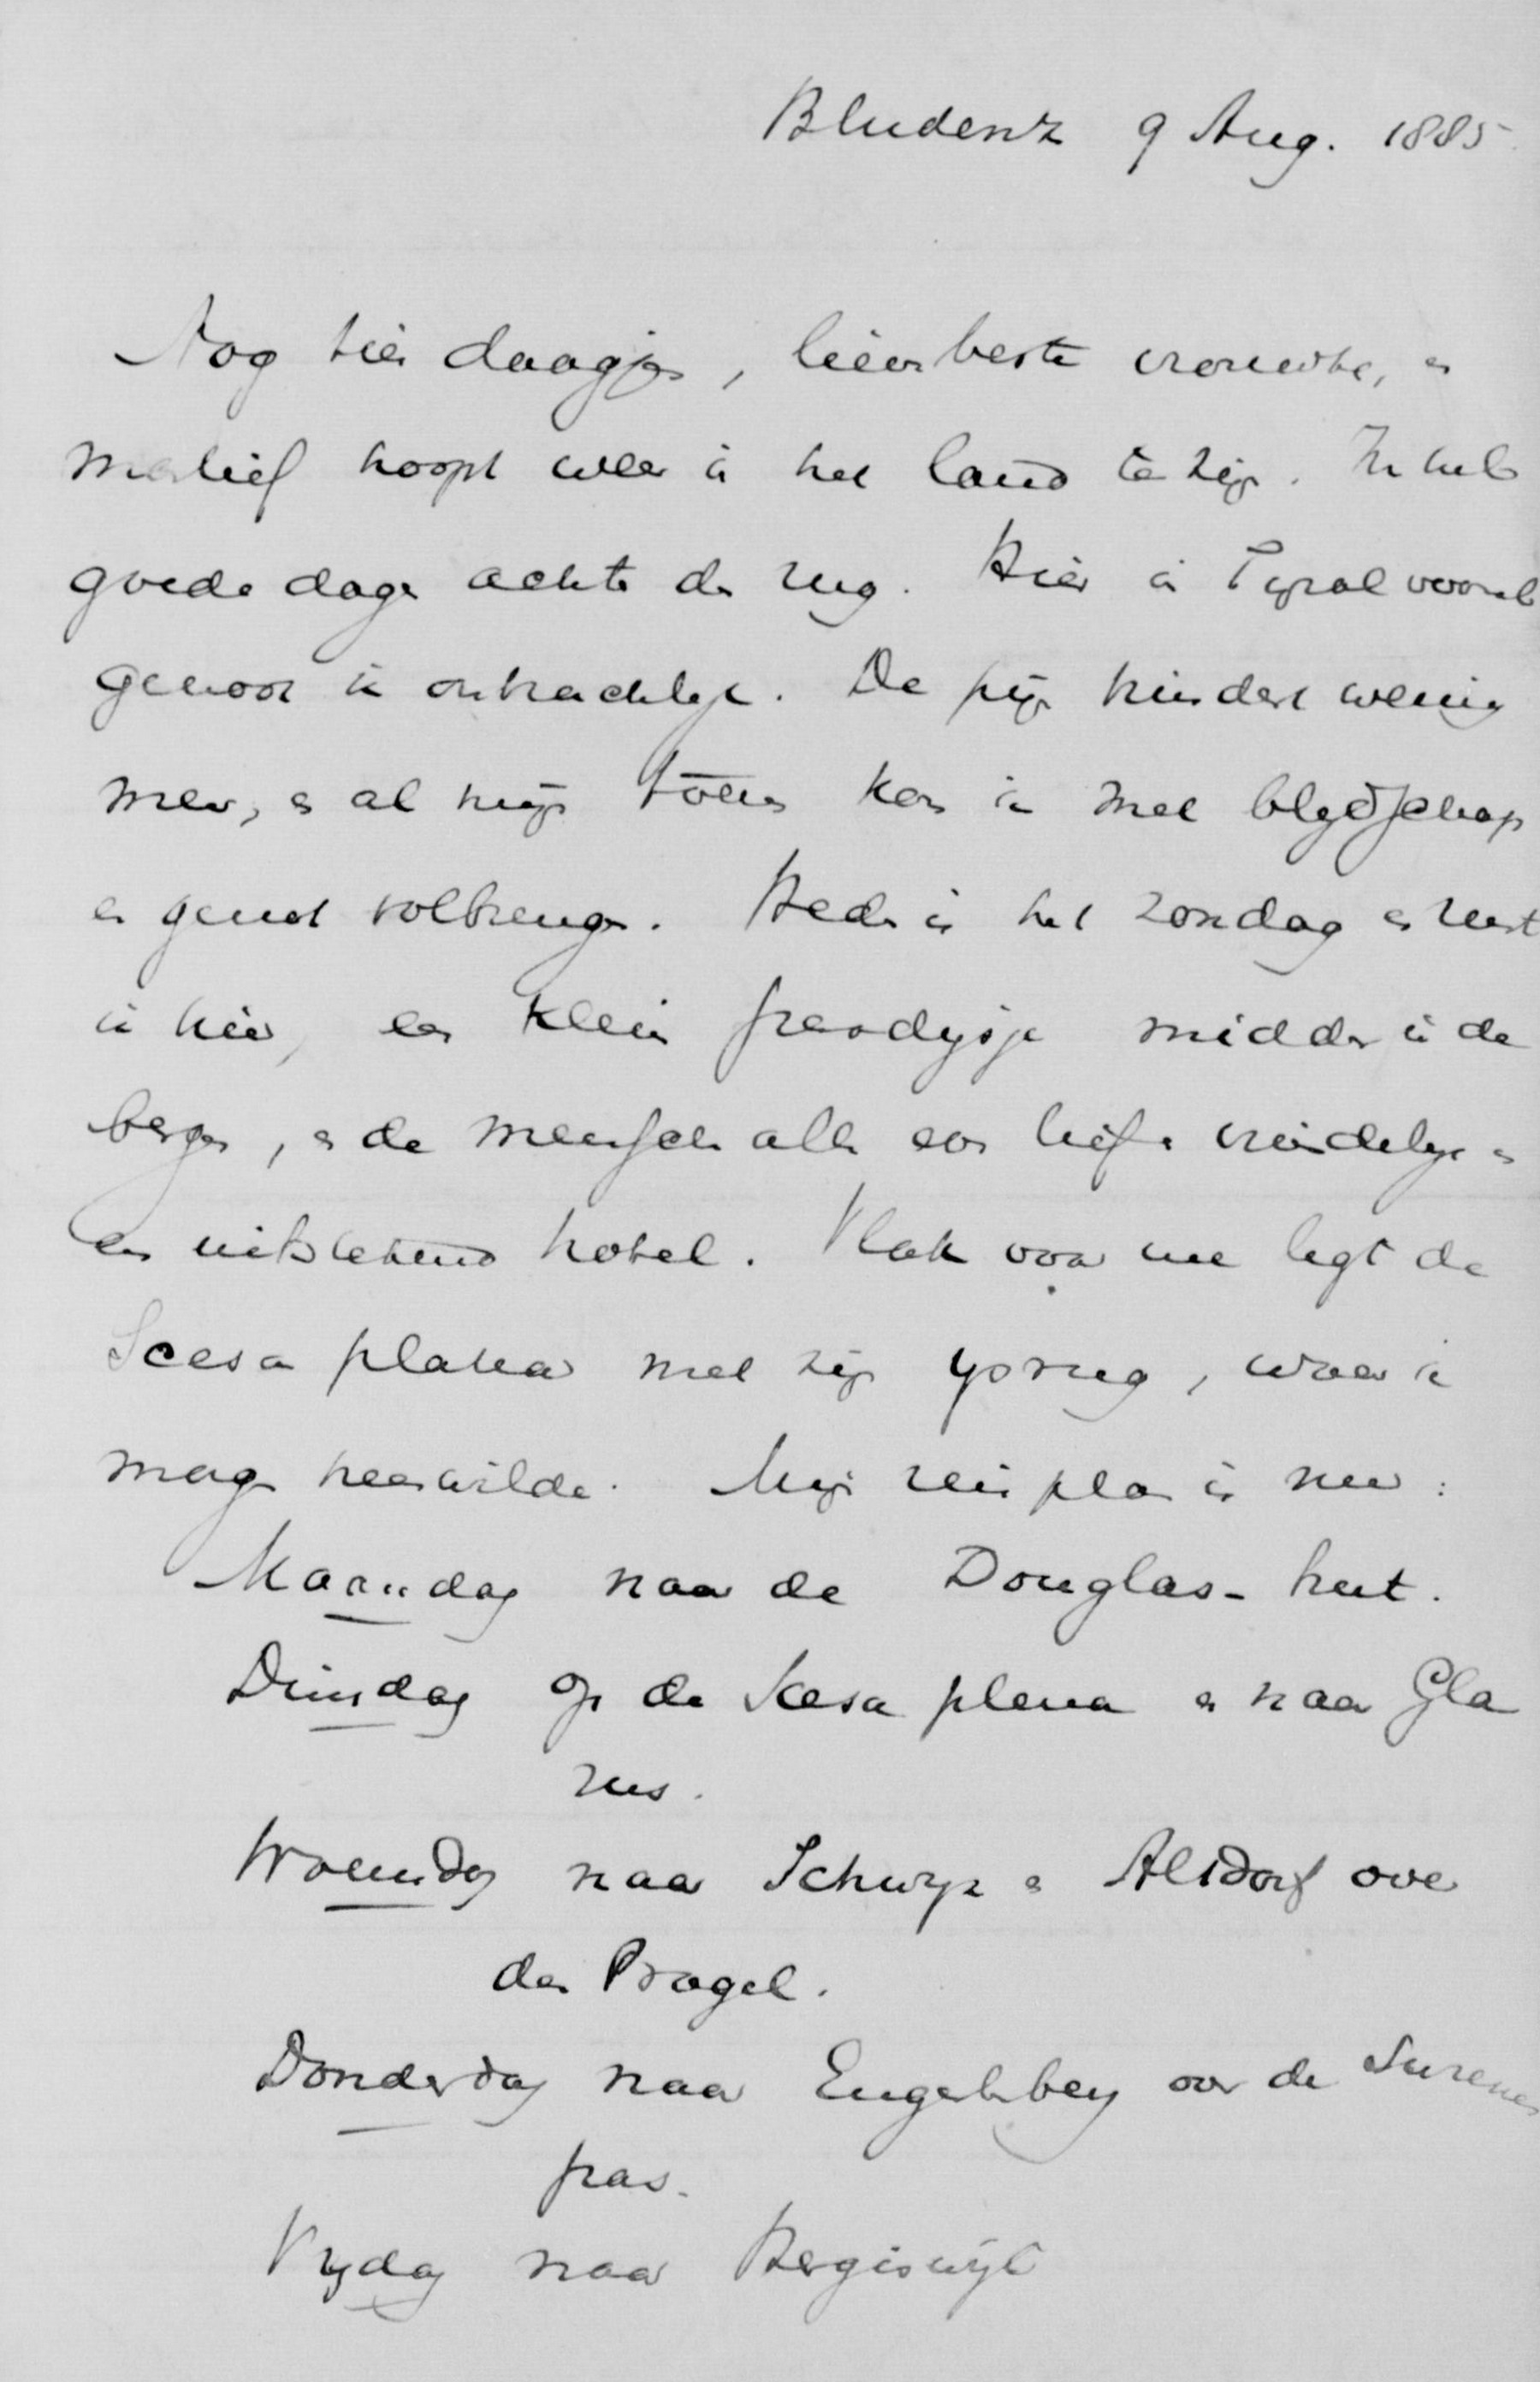 Bludenz 9 Aug. 1885
Nog tien daagjes, lieverbeste vrouwtke, en
manlief hoopt weer in het land te zijn. Ik heb
goede dagen achter den rug. Hier in Tyrol vooral
genoot ik onkrachtelyk. De pijn hindert weinig
meer, en al mijn toeren kan ik met blydschap
en genot volbrengen. Heden is het Zondag en rust
ik hier, een klein paradysje midden in de
bergen, en de menschen allen even lief en vriendelyk en
een uitstekend hotel. Vlak voor me ligt de
Scesa plana met zijn ysrug, waar ik
morgen heen wilde. Mijn reisplan is nu:
Maandag naar de Douglas-hut.
Dinsdag op de Scesa plana en naar Gla
rus.
Woensdag naar Schwyz en Altdorf over
den Pragel.
Donderdag naar Engelberg over de Surenen
pas.
Vrydag naar Hergiswyl